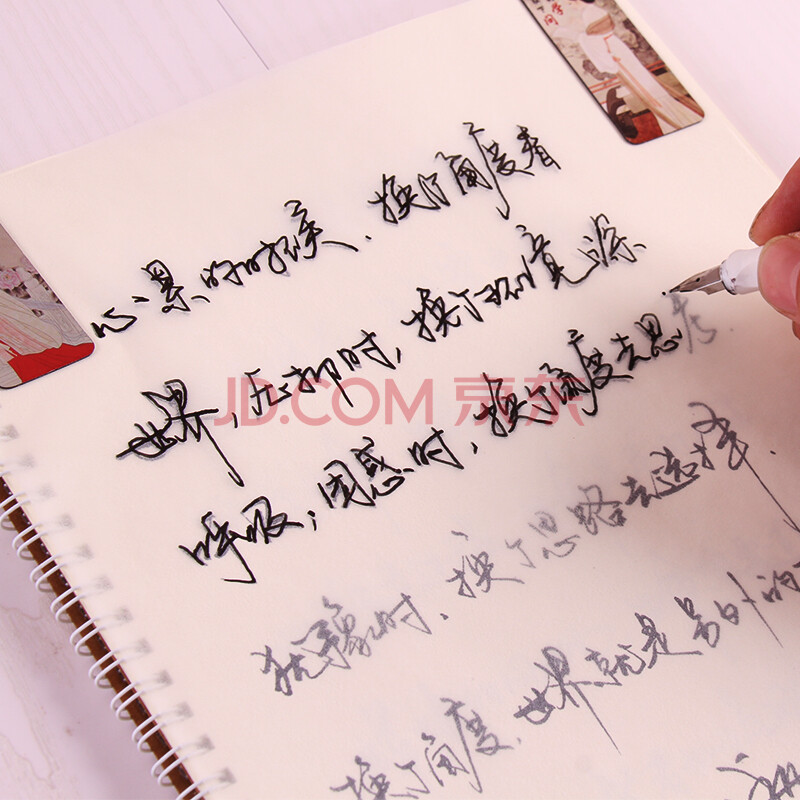 心累的时候,换个角度看
世界,压抑时,换个环境深
呼吸,困惑时,换个角度去思考.
犹豫时,换个思路去选择.
换个角度,世界就是另外的
JD.COM 京东